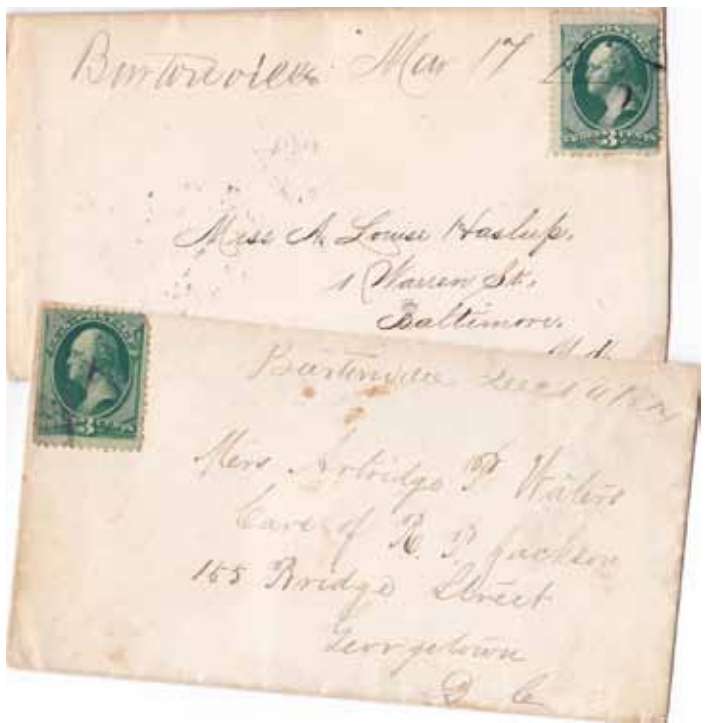 Burtonsville Mar 17
3
Miss A. Louise Haslup.
1 Warren St.
Baltimore.
Md.
3
Burtonsville
Miss Artridge P. Waters
Care of R. P. Jackson
155 Bridge Street
Georgetown
D C